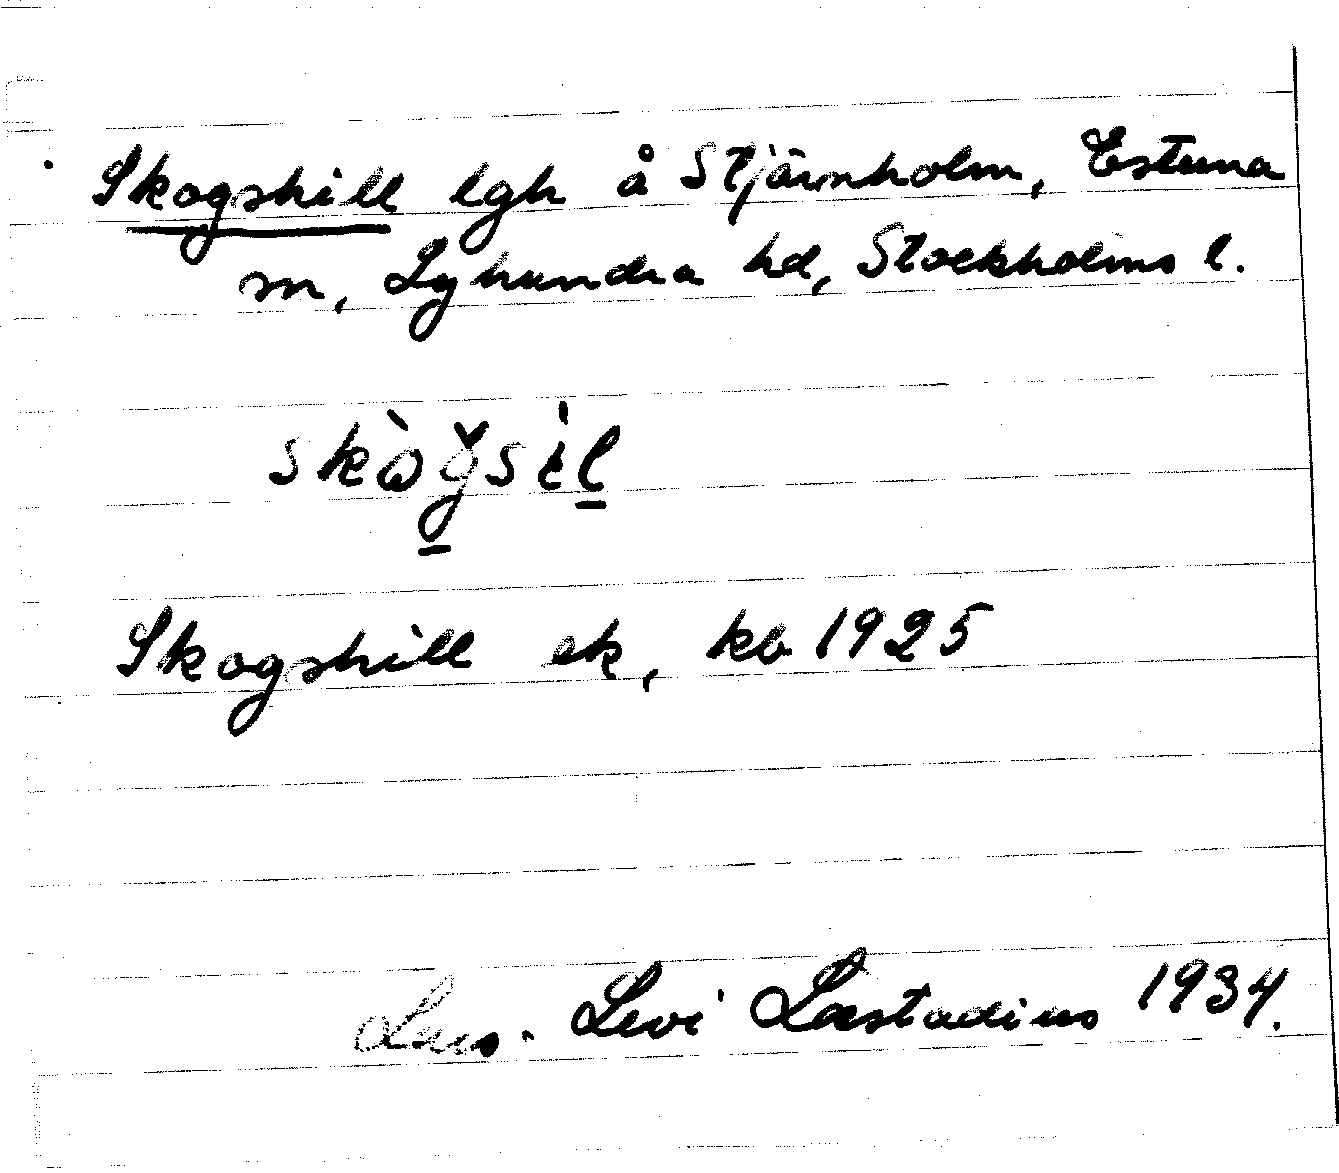 Skogshill lgh å Stjärnholm, Estuna
sn, Lyhundra hd, Stockholms l.
skògsil
Skogshill ek, kb 1925
Levi Læstadius 1934.